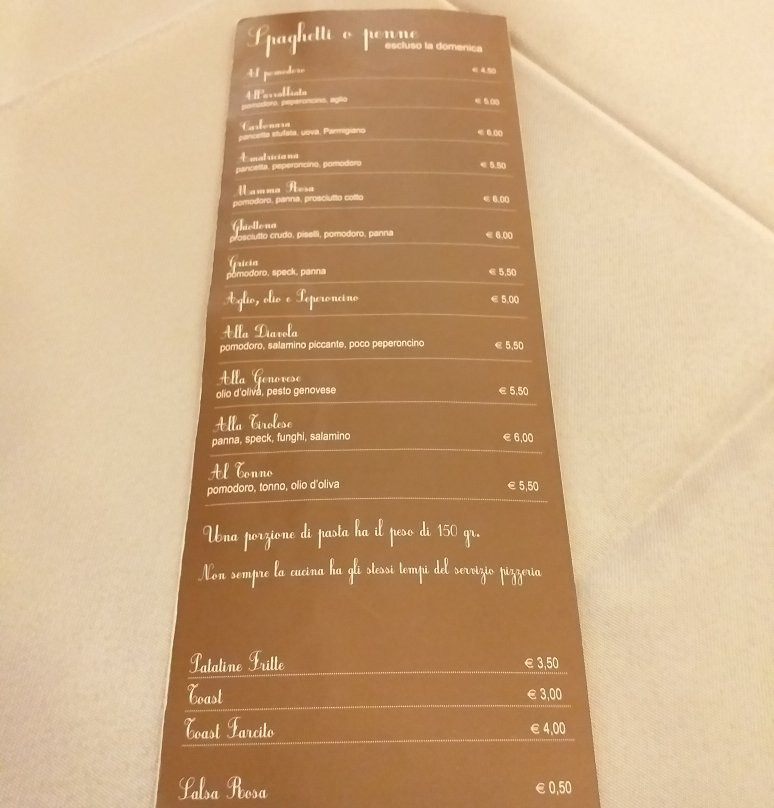 Spaghetti o penne
escluso la domenica
Al pomodoro € 4,50
All'arrabbiata
pomodoro, peperoncino, aglio € 5,00
Carbonara
pancetta stufata, uova, Parmigiano € 6,00
Amatriciana
pancetta, peperoncino, pomodoro € 5,50
Mamma Rosa
pomodoro, panna, prosciutto cotto € 6,00
Ghiottona
prosciutto crudo, piselli, pomodoro, panna € 6,00
Gricia
pomodoro, speck, panna € 5,50
Aglio, olio e Peperoncino € 5,00
Alla Diavola
pomodoro, salamino piccante, poco peperoncino € 5,50
Alla Genovese
olio d'oliva, pesto genovese € 5,50
Alla Tirolese
panna, speck, funghi, salamino € 6,00
Al Tonno
pomodoro, tonno, olio d'oliva € 5,50
Una porzione di pasta ha il peso di 150 gr.
Non sempre la cucina ha gli stessi tempi del servizio pizzeria
Patatine Fritte € 3,50
Toast € 3,00
Toast Farcito € 4,00
Salsa Rosa € 0,50